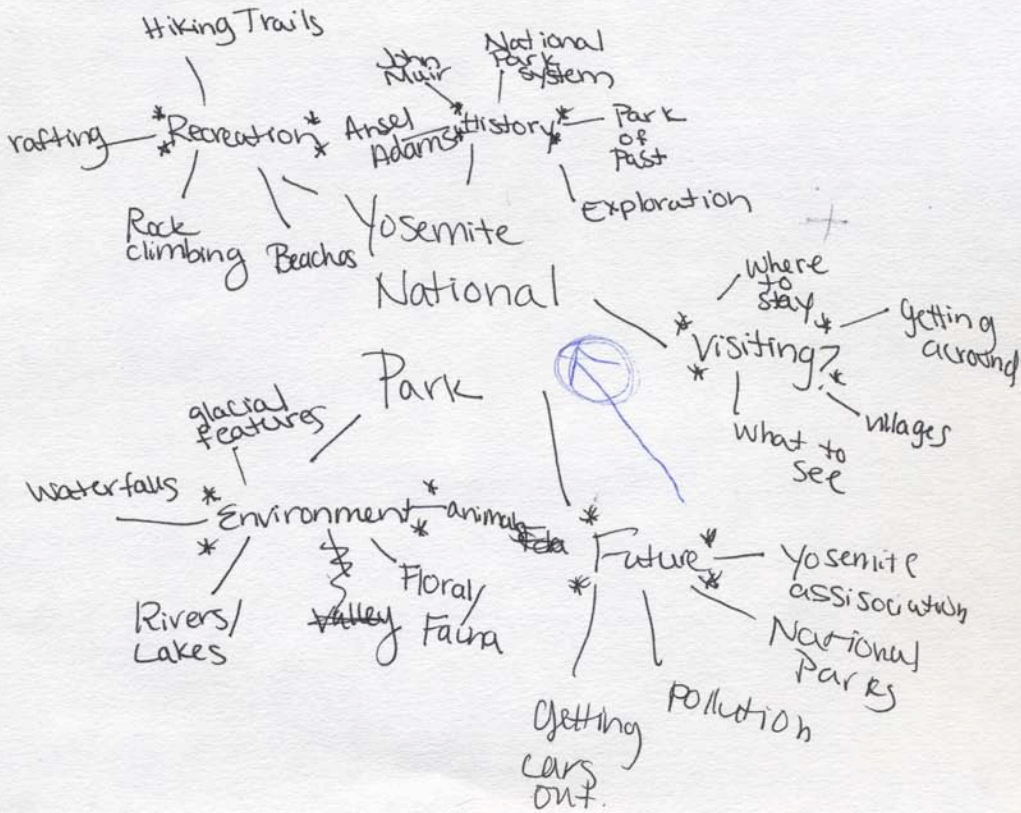 Hiking Trails
rafting
*Recreation*
Rock
climbing
Beaches
John
Muir
National
Park
system
Ansel
Adams
*History*
Park
of
Past
Exploration
Yosemite
National
Park
where
to
stay
*Visiting?*
getting
acround
villages
what to
see
glacial
features
waterfalls
*Environment*
animals
Rivers/
Lakes
Valley
Floral/
Fauna
*Future*
Yosemite
assisociation
National
Parks
Pollution
getting
cars
out.